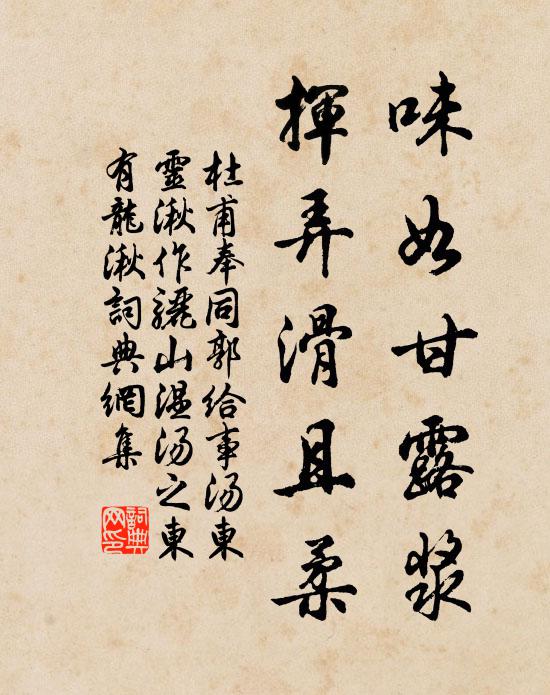 味如甘露漿
揮弄滑且柔
杜甫奉同郭給事湯東
靈湫作驪山溫湯之東
有龍湫詞典網集
詞典網印